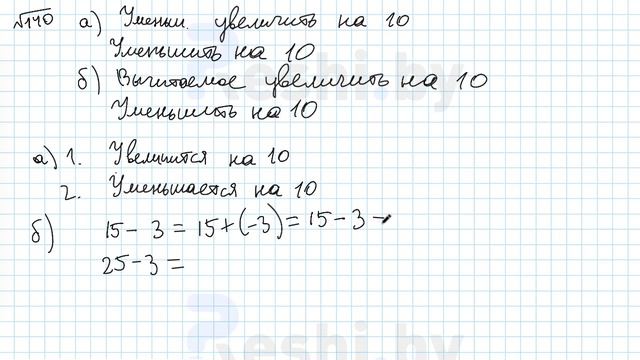 №140 а) Уменьш. увеличить на 10
Уменьшить на 10
б) Вычитаемое увеличить на 10
Уменьшить на 10
а) 1. Увеличится на 10
2. Уменьшается на 10
б) 15 - 3 = 15 + (-3) = 15 - 3 -
25 - 3 =
Reshi.by